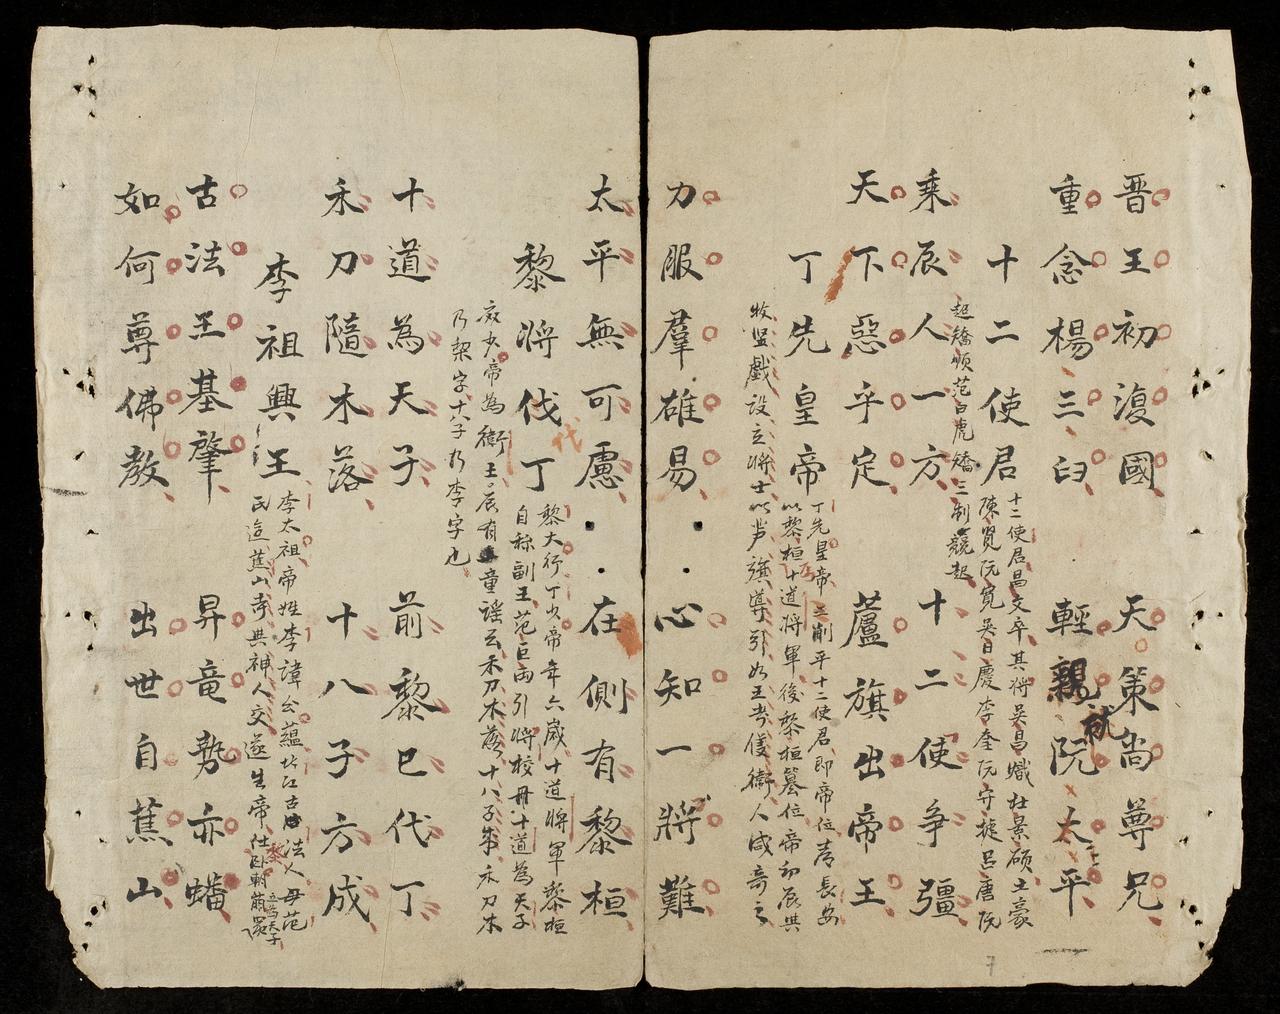 晋王初復國　天策尚尊兄
重念楊三臼　輕親就阮太平
十二使君
十二使君昌文卒其将吳昌熾杜景碩土豪
陳覽阮寬吳日慶李奎阮守捷呂唐阮
起矯順范白虎矯三制競起
乘辰人一方　十二使争彊
天下惡乎定　蘆旗出帝王
丁先皇帝
丁先皇帝削平十二使君即帝位于長安
以黎桓十道将軍後黎桓篡位帝初辰與
牧竖戲設立將士以芦旗導引如王者仗衛人咸奇之
力服羣雄易　心知一將難
太平無可慮　在側有黎桓
黎將伐丁
代
黎大行丁少帝年六歲十道將軍黎桓
自称副王范巨両引將校冊十道為天子
廢少帝為衛王辰有童謠云禾刀木落十八子成禾刀木
乃黎字十八子乃李字也
十道為天子　前黎已代丁
禾刀隨木落　十八子方成
李祖興王
李太祖帝姓李諱公蘊北江古法人母范
氏遊蕉山寺與神人交遂生帝仕黎
立為天子
古法王基肇　昇竜勢亦蟠
如何尊佛教　出世自蕉山
7